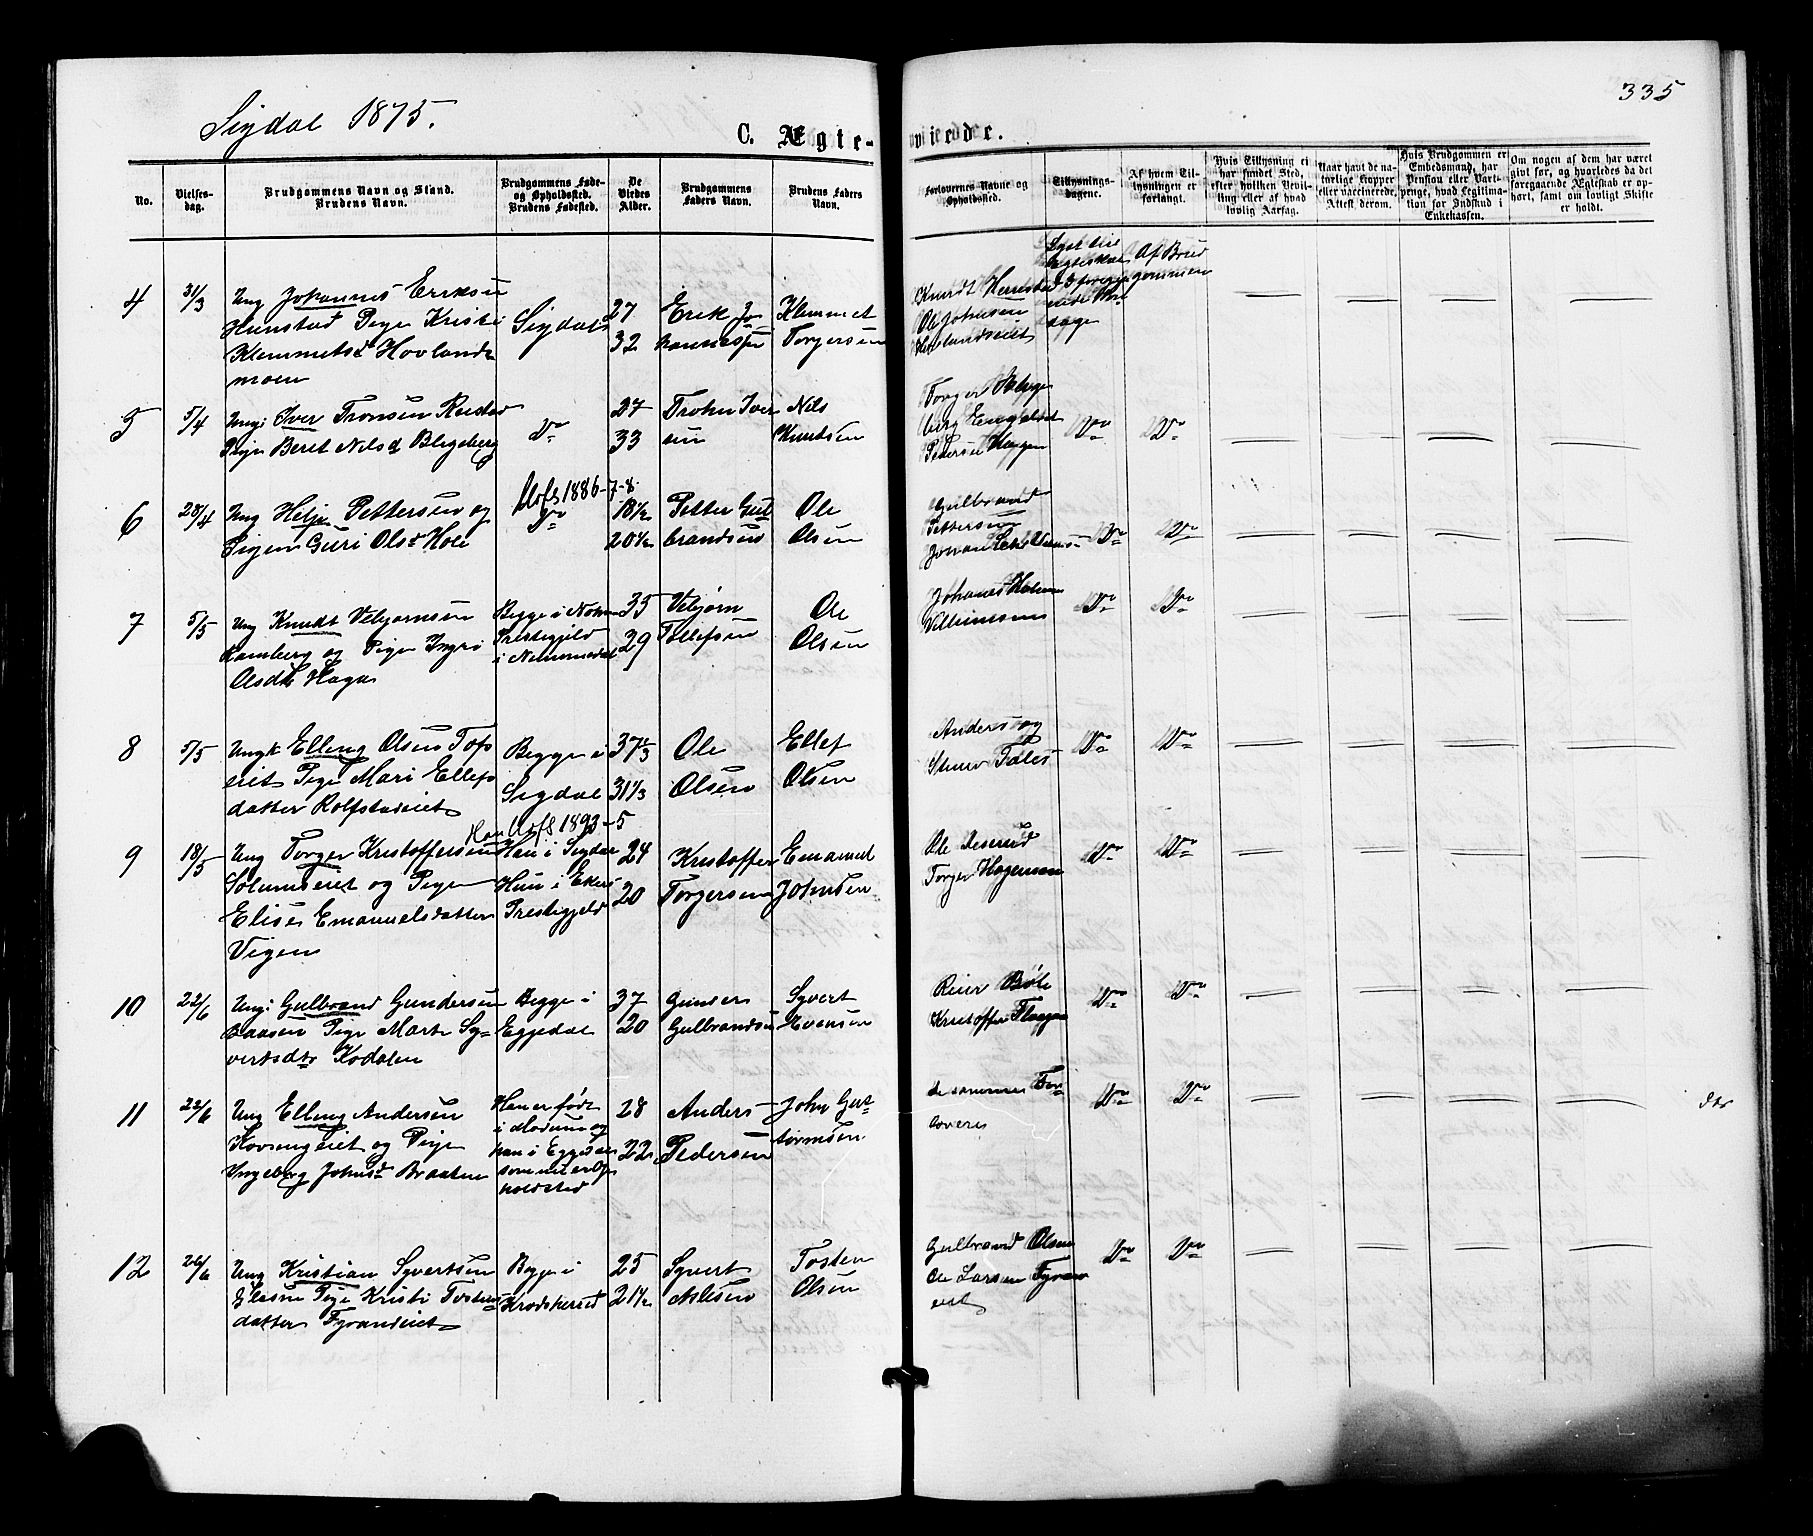 Sigdal 1875.
335
C. Ægte-
viede.
No.
Vielses-
dag.
Brudgommens Navn og Stand.
Brudens Navn.
Brudgommens Føde-
og Opholdssted.
Brudens Fødested.
De
Viedes
Alder.
Brudgommens
Faders Navn.
Brudens Faders
Navn.
Forlovernes Navne og
Opholdssted.
Tillysnings-
dagene.
Af hvem Til-
lysningen er
forlangt.
Hvis Tillysning ei
har fundet Sted,
efter hvilken Bevil-
ling eller af hvad
lovlig Aarsag.
Naar havt de na-
turlige Kopper
eller vaccinerede.
Attest derom.
Hvis Brudgommen er
Embedsmand, har
Pension eller Vart-
penge, hvad Legitima-
tion for Indskud i
Enkekassen.
Om nogen af dem har været
gift før, og hvorledes da det
foregaaende Ægteskab er op-
hørt, samt om lovligt Skifte
er holdt.
4 31/3
Ung Johannes Eriksen
Hunstad Pige Kristi
Klemmetsd Hovlands
moen
Sigdal
27
32
Erik Jo
hannessen
Klemmet
Torgersen
Knudt Herrestad
Ole Johnsen
Hovlandseiet
Lyst til
Ægteskab
3 forega
ende
dage
Af Brud
gommen
5 5/4
Ungk Iver Tronsen Restad
Pige Beret Nilsd Bligeberg
Do
27
33
Trohn Iver
sen
Nils
Knudsen
Torger Blige
berg
Pedersen Haugen
Do Do
6 28/4
Ung Helge Pettersen og
Pigen Guri Olsd Hole
Utfl 1886-7-8.
Do
18 1/2
20 1/2
Petter Gul
brandsen
Ole
Olsen
Gulbrand
Pettersen
Do Do
7 5/5
Ung Knudt Vebjørnsen
Ramberg og Pige Ingri
Olsdtr Haga
Begge i Nore
Prestegjeld
i Nummedal
35
29
Vebjørn
Tollefsen
Ole
Olsen
Johanes Holm
Villumsens
Do Do
8 5/5
Ungk Elling Olsen Tofs
eiet Pige Mari Ellefs
datter Rolfstadeiet
Begge i
Sigdal
37 2/3
31 1/3
Ole
Olsen
Ellef
Olsen
Anders og
Stener Foles
Do Do
9 18/5
Ung Torger Kristoffersen
Solumseiet og Pige
Elise Emanuelsdatter
Vigen
Han Utfl 1893-5
Han i Sigdal
Hun i Ekers
Prestegjeld
24
20
Kristoffer
Torgersen
Emanuel
Johnsen
Ole Deserud
Torger Hagensen
Do Do
10 22/6
Ungk Gulbrand Gundersen
Baasen Pige Marte Sy=
vertsdtr Kodalen
Begge i
Eggedal
37
20
Gunder
Gulbrandsen
Syvert
Evensen
Reier Bøle
Kristoffer Flaagan
Do Do
11 22/6
Ung Elling Andersen
Kovsengeiet og Pige
Ingeborg Johnsd Braaten
Han er født
i Modum og
hun i Eggedal
som nu er Op
holdsted
28
22
Anders
Pedersen
John Gut=
tormsen
de sammes For
lovere
Do Do
12 26/6
Ung Kristian Syvertsen
Glesne Pige Kristi Tostens
datter Fyrandeiet
Begge i
Krødsherred
25
21 1/2
Syvert
Nilsen
Tosten
Olsen
Gulbrand Olsen
Ole Larsen Fyran
eiet
Do Do